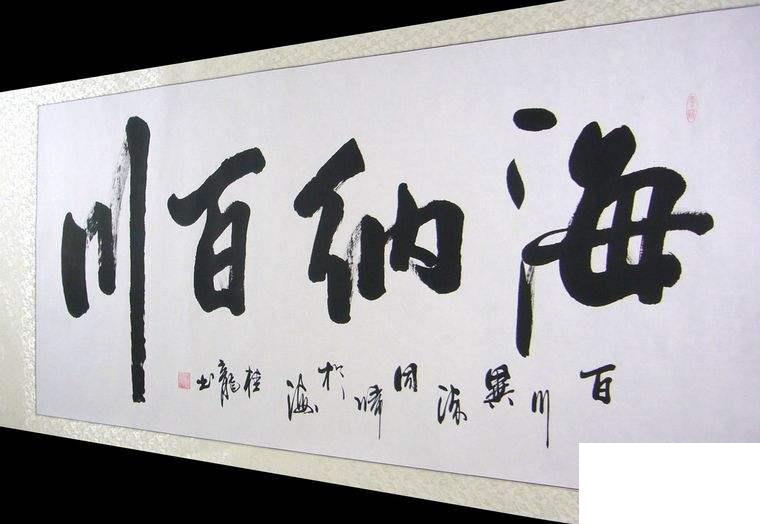 海纳百川
百川異源同歸於海 桂龍书